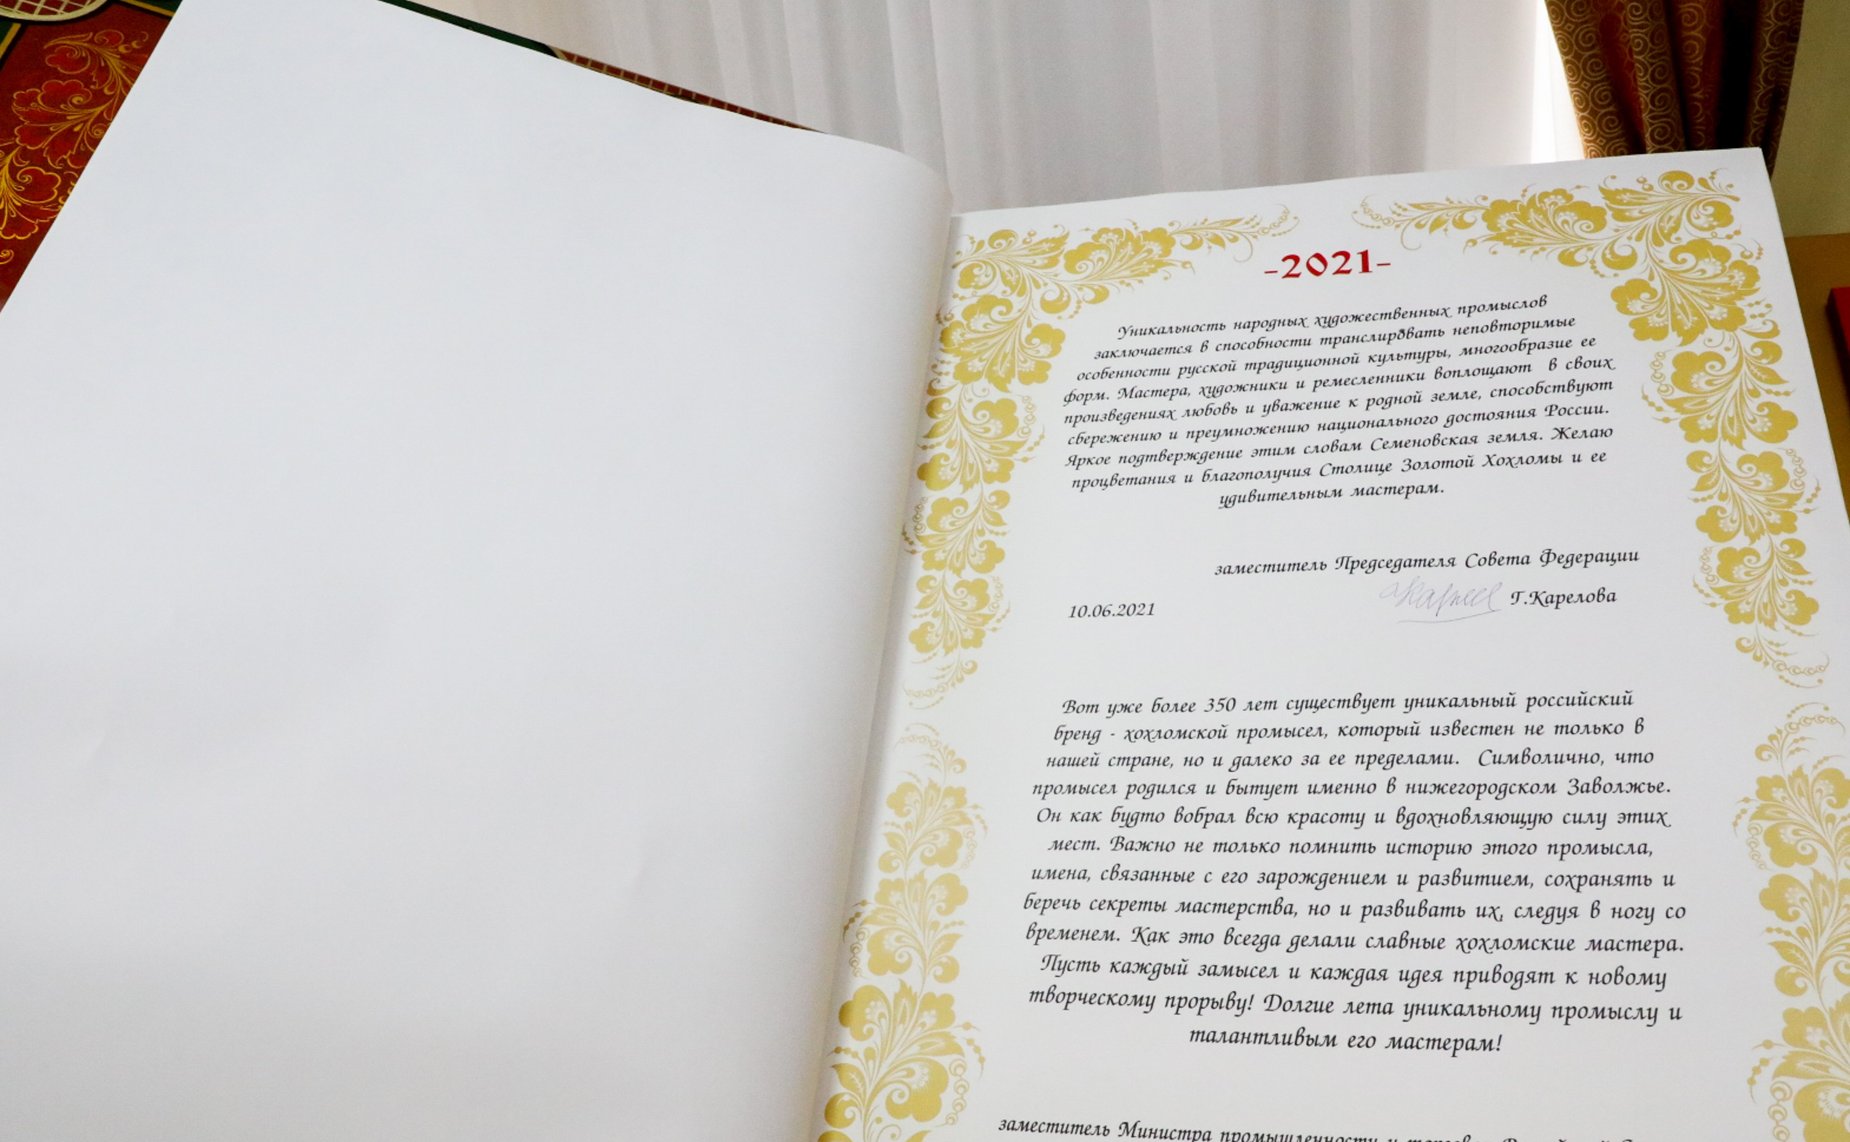 -2021-
Уникальность народных художественных промыслов
заключается в способности транслировать неповторимые
особенности русской традиционной культуры, многообразие ее
форм. Мастера, художники и ремесленники воплощают в своих
произведениях любовь и уважение к родной земле, способствуют
сбережению и преумножению национального достояния России.
Яркое подтверждение этим словам Семеновская земля. Желаю
процветания и благополучия Столице Золотой Хохломы и ее
удивительным мастерам.
заместитель Председателя Совета Федерации
10.06.2021 Г.Карелова
Вот уже более 350 лет существует уникальный российский
бренд - хохломской промысел, который известен не только в
нашей стране, но и далеко за ее пределами. Символично, что
промысел родился и бытует именно в нижегородском Заволжье.
Он как будто вобрал всю красоту и вдохновляющую силу этих
мест. Важно не только помнить историю этого промысла,
имена, связанные с его зарождением и развитием, сохранять и
беречь секреты мастерства, но и развивать их, следуя в ногу со
временем. Как это всегда делали славные хохломские мастера.
Пусть каждый замысел и каждая идея приводят к новому
творческому прорыву! Долгие лета уникальному промыслу и
талантливым его мастерам!
заместитель Министра промышленности и